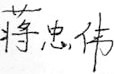 蒋忠伟